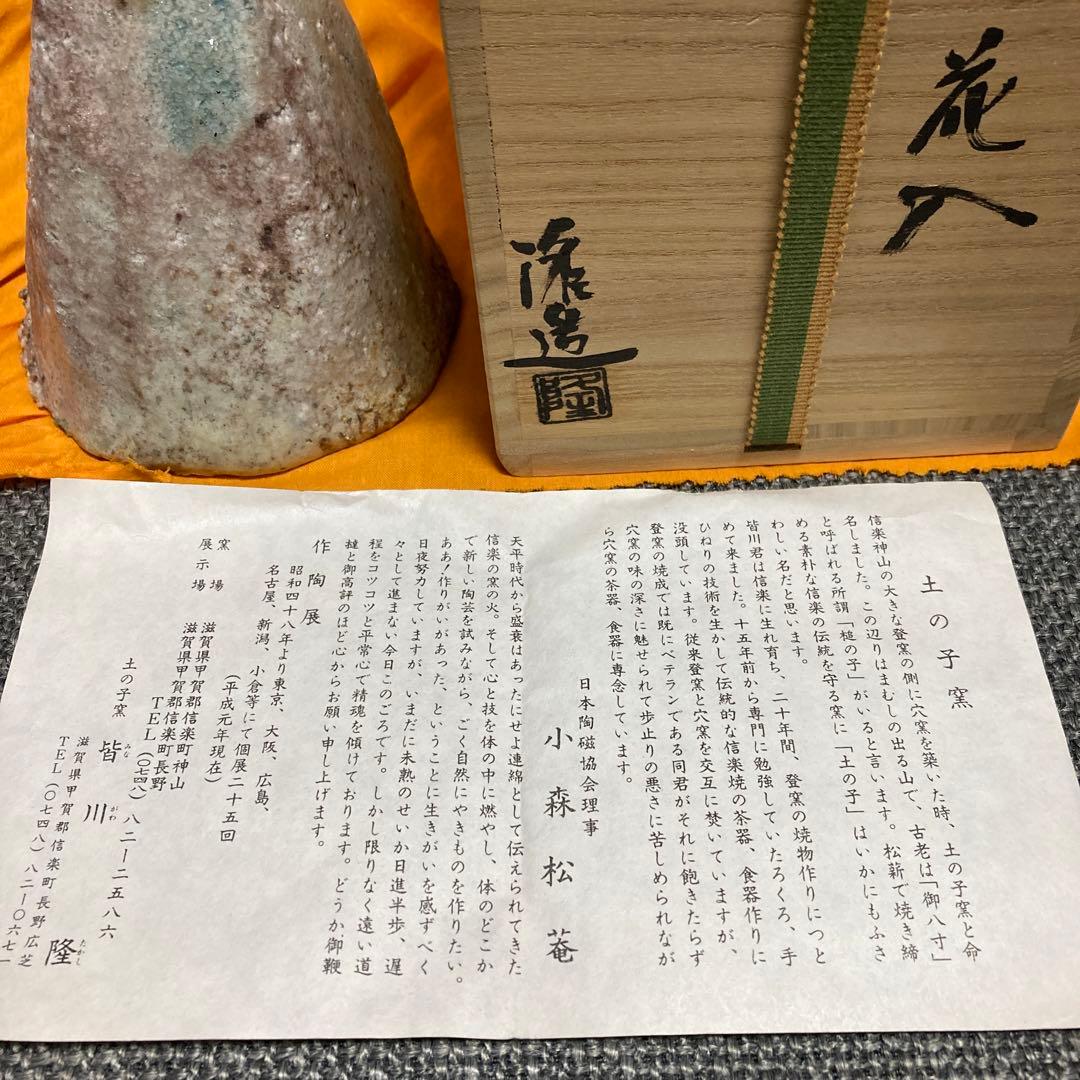 花入
隆造
隆
土の子窯
信楽神山の大きな登窯の側に穴窯を築いた時、土の子窯と命
名しました。この辺りはまむしの出る山で、古老は「御八寸」
と呼ばれる所謂「槌の子」がいると言います。松薪で焼き締
める素朴な信楽の伝統を守る窯に「土の子」はいかにもふさ
わしい名だと思います。
皆川君は信楽に生れ育ち、二十年間、登窯の焼物作りにつと
めて来ました。十五年前から専門に勉強していたろくろ、手
ひねりの技術を生かして伝統的な信楽焼の茶器、食器作りに
没頭しています。従来登窯と穴窯を交互に焚いていますが、
登窯の焼成では既にベテランである同君がそれに飽きたらず
穴窯の味の深さに魅せられて歩止りの悪さに苦しめられなが
ら穴窯の茶器、食器に専念しています。
日本陶磁協会理事
小森松菴
天平時代から盛衰はあったにせよ連綿として伝えられてきた
信楽の窯の火。そして心と技を体の中に燃やし、体のどこか
で新しい陶芸を試みながら、ごく自然にやきものを作りたい。
ああ!作りがいがあった、ということに生きがいを感ずべく
日夜努力していますが、いまだに未熟のせいか日進半歩、遅
々として進まない今日このごろです。しかし限りなく遠い道
程をコツコツと平常心で精魂を傾けております。どうか御鞭
撻と御高評のほど心からお願い申し上げます。
作陶展
昭和四十八年より東京、大阪、広島、
名古屋、新潟、小倉等にて個展二十五回
(平成元年現在)
窯場 滋賀県甲賀郡信楽町神山
展示場 滋賀県甲賀郡信楽町長野
TEL(〇七四八)八二ー二五八六
土の子窯 皆川隆
みながわ たかし
滋賀県甲賀郡信楽町長野広芝
TEL(〇七四八)八二ー〇六七一